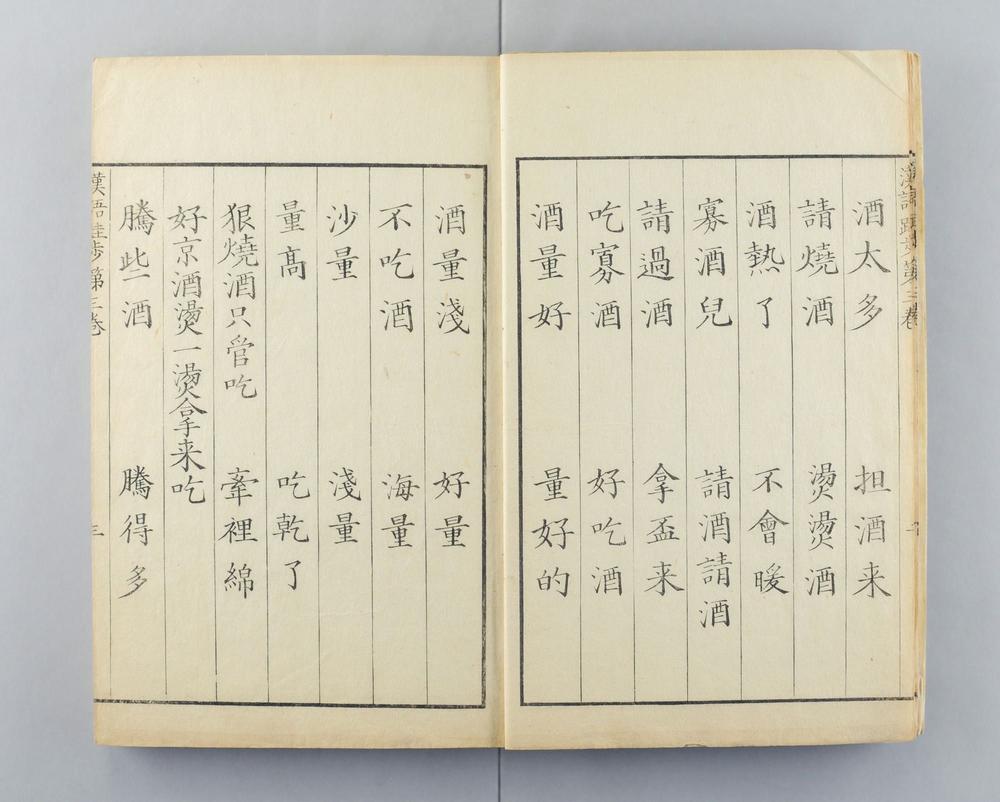 酒太多 担酒来
請燒酒 燙燙酒
酒熱了 不會暖
寡酒兒 請酒請酒
請過酒 拿盃来
吃寡酒 好吃酒
酒量好 量好的
酒量淺 好量
不吃酒 海量
沙量 淺量
量高 吃乾了
狠燒酒只管吃 牽裡綿
好京酒燙一燙拿来吃
騰些酒 騰得多
漢語跬步第三卷 三